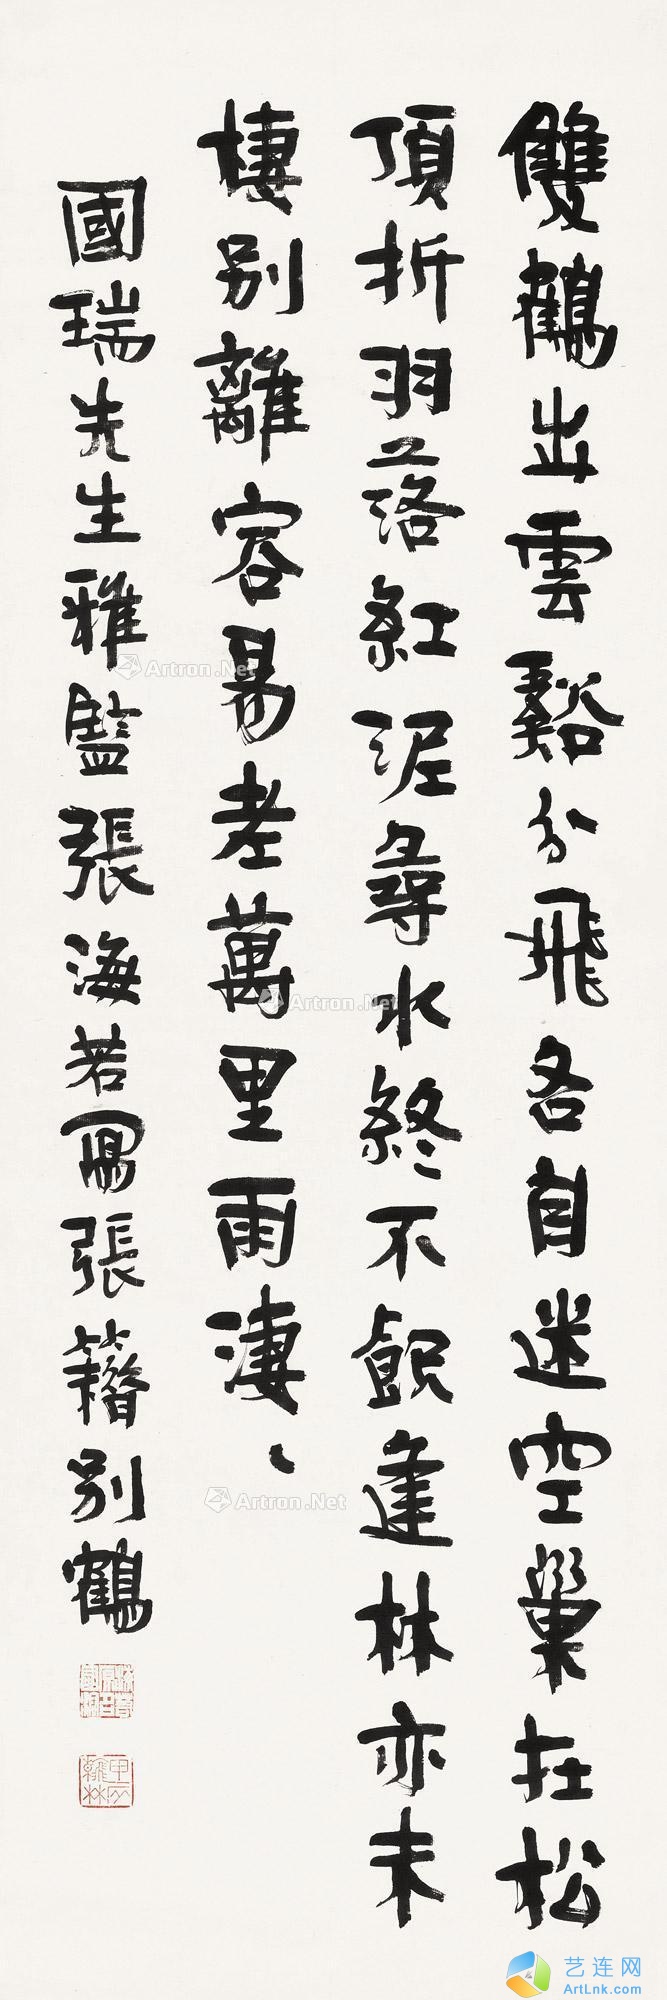 雙鶴出雲谿分飛各自迷空巢在松
頂折羽落紅泥尋水終不飲逢林亦未
棲別離容易老萬里雨淒〻
國瑞先生雅監張海若寫張籍別鶴
Artron.Net
Artron.Net
Artron.Net
艺连网
ArtLnk.com